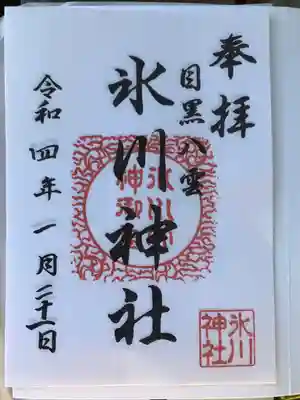 奉拝
目黒八雲
氷川神社
令和四年一月二十一日
氷川
神社